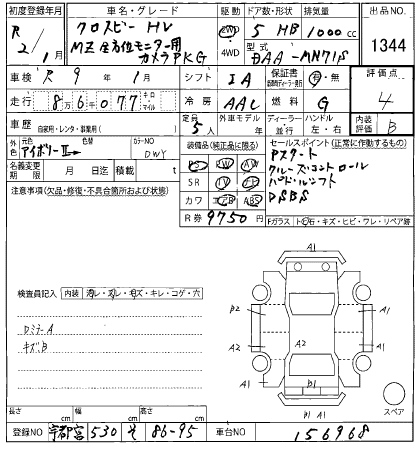 初度登録年月 車名・グレード 駆動 ドア数・形状 排気量 出品NO.
R 2/1月 クロスビー HV 2WD 5 HB 1000 cc 1344
MZ 全方位モニター用 4WD 型式
カメラPKG DAA-MN71S
車検 R 9年 1月 シフト IA 保証書 有・無 燃料 評価点
走行 8万6千077 キロ マイル 冷房 AAC 燃料 G 4
車歴 自家用・レンタ・事業用( ) 定員 5人 外車モデル 年 ディーラー・並行 ハンドル 左・右 内装評価 B
外色 元色 アイボリーⅡ 色替 カラーNO DWY
装備品(純正品に限る) セールスポイント(正常に作動するもの)
名義変更期限 月 日迄 積載 t
PS PW AW Pスタート
SR TV ナビ クルーズコントロール
カワ エアB ABS パドルシフト
DSBS
注意事項(欠品・修復・不具合箇所および状態)
R券 9750 円
Fガラス ト石・キズ・ヒビ・ワレ・リペア跡
検査員記入 内装 汚レ・スレ・キズ・キレ・コゲ・穴
DミラーA
キズB
A1
B2 A1
A2 A2 A2
A1 A1
B1
B1 A1
スペア
長さ cm 幅 cm 高さ cm
登録NO 宇都宮 530 そ 86-95 車台NO 156968